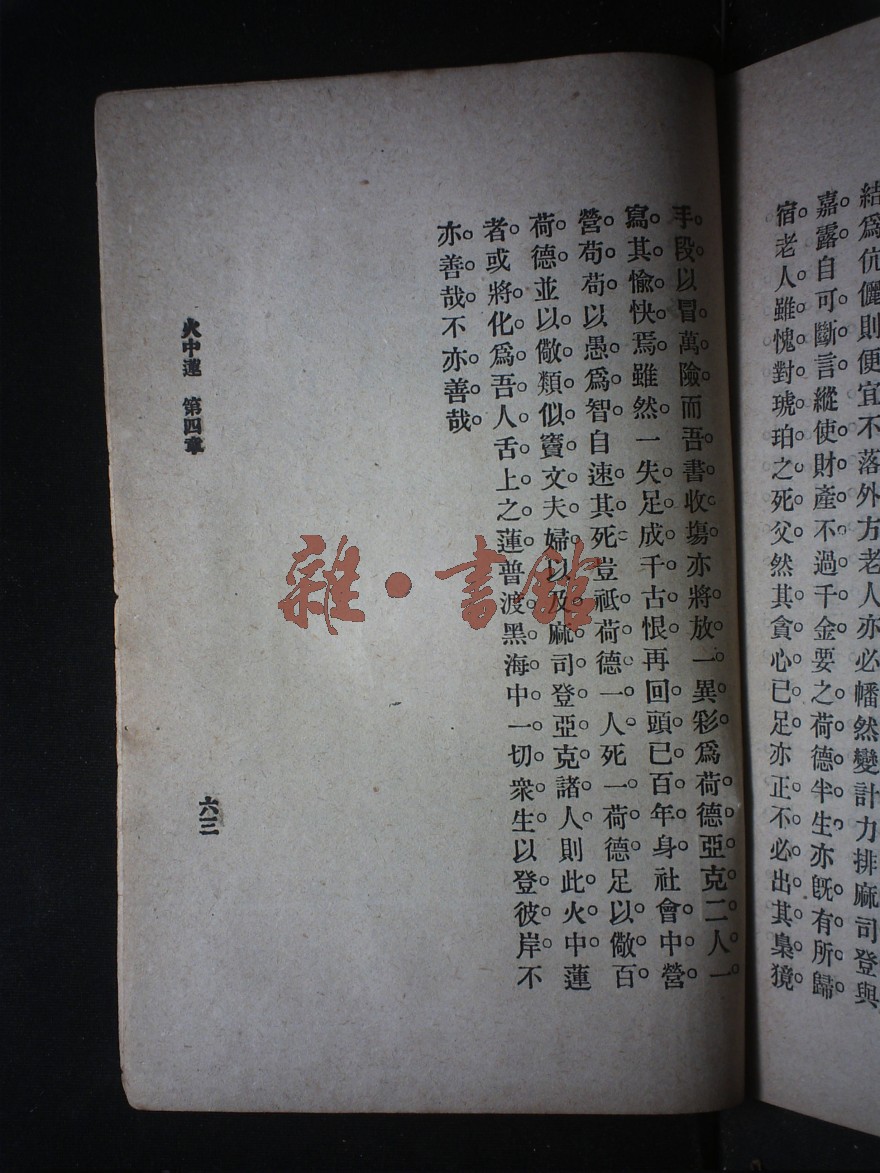 結爲伉儷則便宜不落外方老人亦必幡然變計力排麻司登與
嘉露自可斷言縱使財產不過千金要之荷德半生亦既有所歸
宿老人雖愧對琥珀之死父然其貪心已足亦正不必出其梟獍
手段以冒萬險而吾書收塲亦將放一異彩爲荷德亞克二人一
寫其愉快焉雖然一失足成千古恨再回頭已百年身社會中營
營苟苟以愚爲智自速其死豈祗荷德一人死一荷德足以儆百
荷德並以儆類似竇文夫婦以及麻司登亞克諸人則此火中蓮
者或將化爲吾人舌上之蓮普渡黑海中一切衆生以登彼岸不
亦善哉不亦善哉
火中蓮 第四章
六三
雜·書館